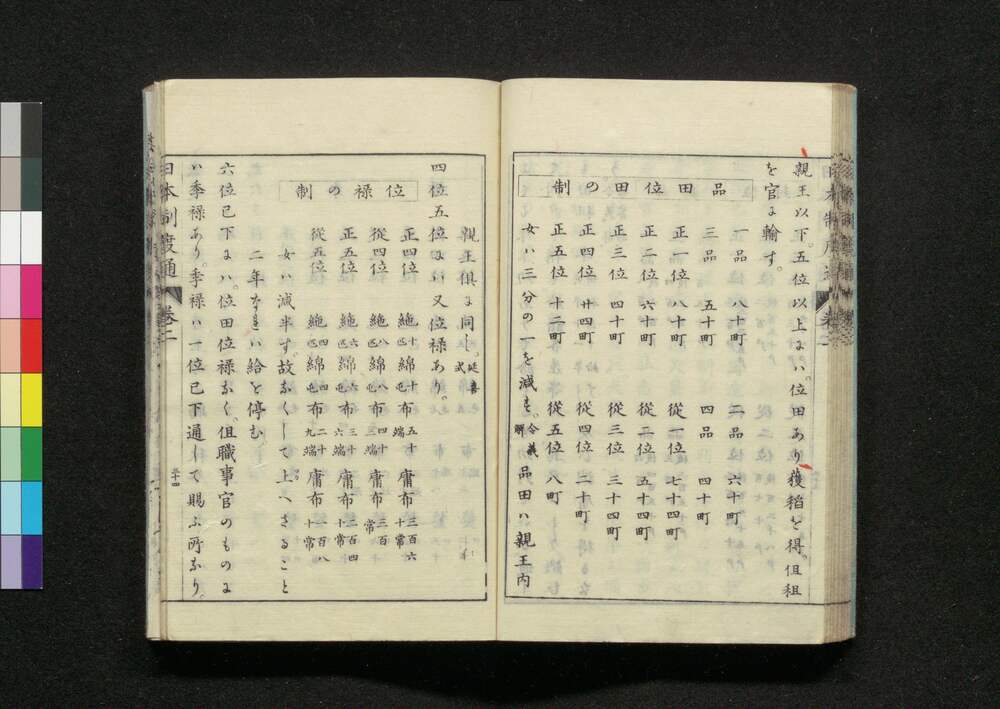 親王以下。五位以上ハ。位田あり獲稻を得。但租
を官に輸す。
品田位田の制
一品 八十町 二品 六十町
三品 五十町 四品 四十町
正一位 八十町 從一位 七十四町
正二位 六十町 從二位 五十四町
正三位 四十町 從三位 三十四町
正四位 廿四町 從四位 二十町
正五位 十二町 從五位 八町
女ハ三分の一を減ず。令義解 品田ハ親王内
親王俱に同し。延喜式
四位五位に又位禄あり。
位禄の制
正四位 絁十匹 綿十屯 布五十端 庸布三百六十常
從四位 絁八匹 綿八屯 布四十三端 庸布三百常
正五位 絁六匹 綿六屯 布三十六端 庸布二百四十常
從五位 絁四匹 綿四屯 布二十九端 庸布一百八十常
女ハ減半す。故なくして上へざること
二年なれハ給を停む
六位已下にハ。位田位禄なく。但職事官のものに
ハ季禄あり。季禄ハ一位已下通して賜ふ所なり。
日本制度通 卷二
三十四